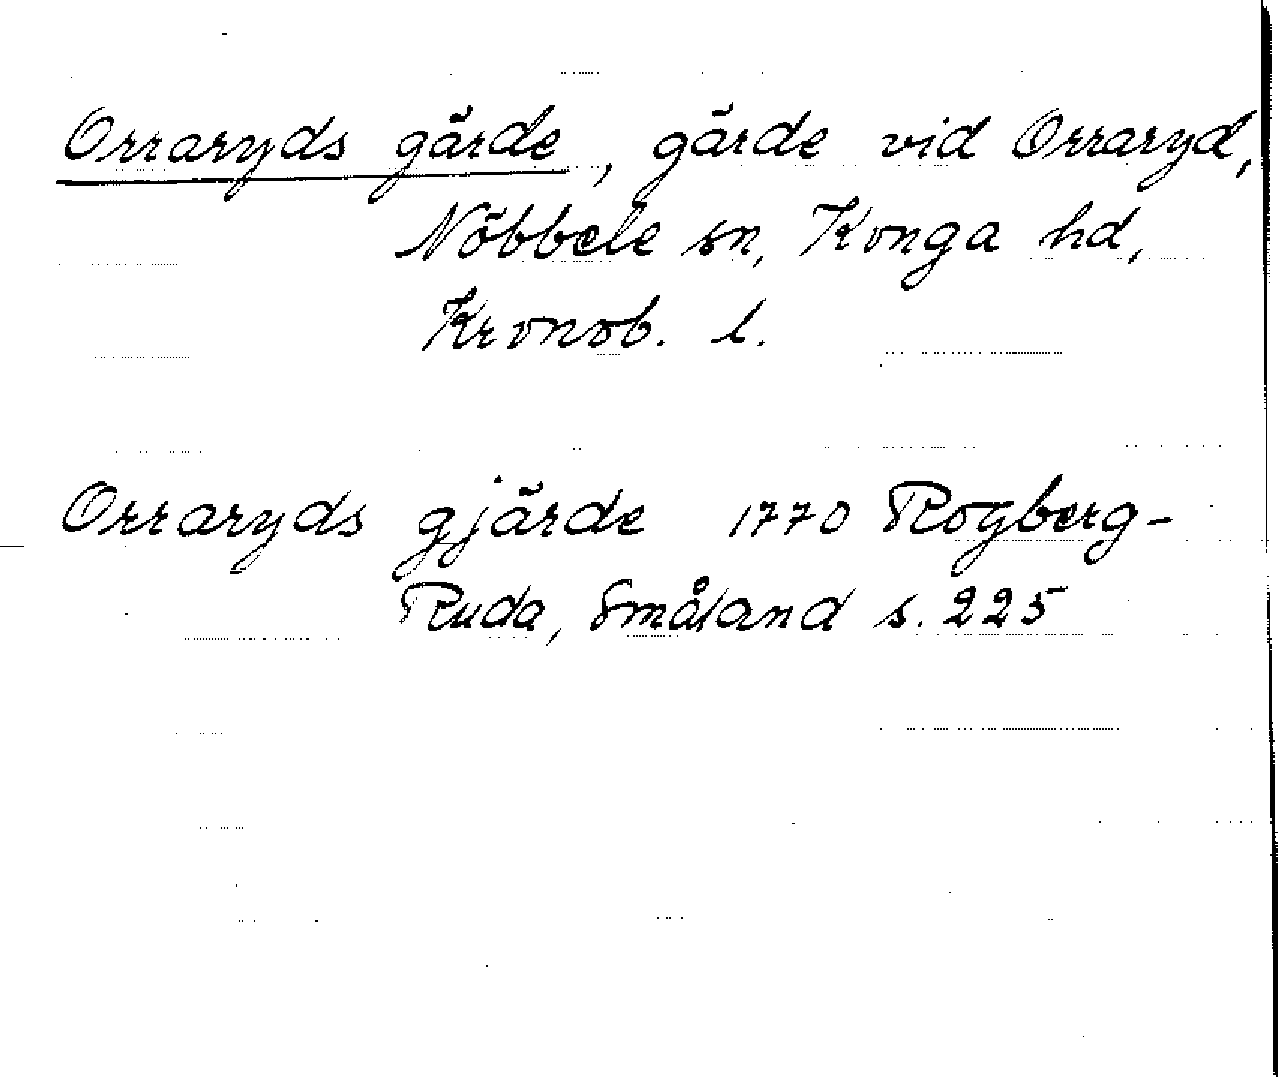 Orraryds gärde, gärde vid Orraryd,
Nöbbele sn, Konga hd,
Kronob. l.
Orraryds gjärde 1770 Rogberg-
Ruda, Småland s. 225